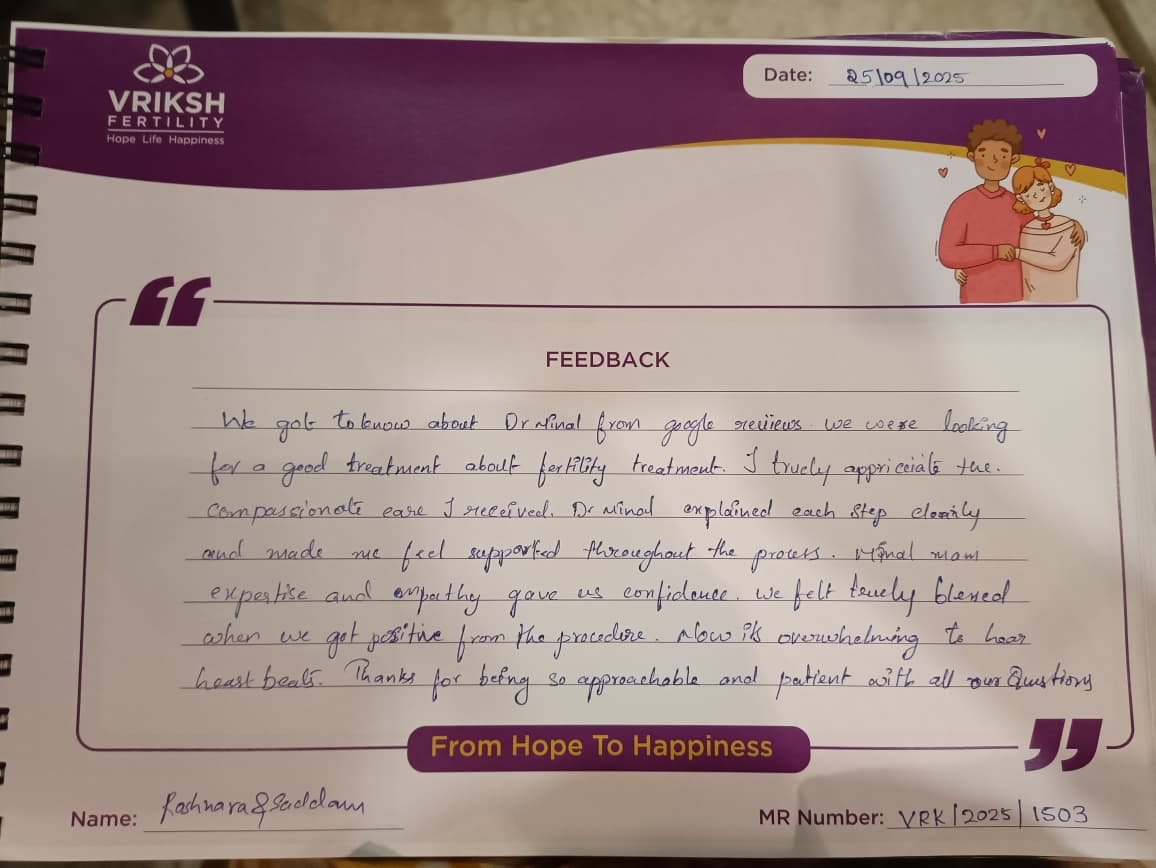 VRIKSH
FERTILITY
Hope Life Happiness
Date: 25/09/2025
FEEDBACK
We got to know about Dr Minal from google reviews. we were looking
for a good treatment about fertility treatment. I truely appriciate the.
compassionate care I received. Dr Minal explained each step clearly
and made me feel supported throughout the process. Minal mam
expertise and empathy gave us confidence. we felt truely blessed
when we got positive from the procedure. Now it's overwhelming to hear
heart beats. Thanks for being so approachable and patient with all our Questions
From Hope To Happiness
Name: Roshnara & Saddam
MR Number: VRK/2025/1503